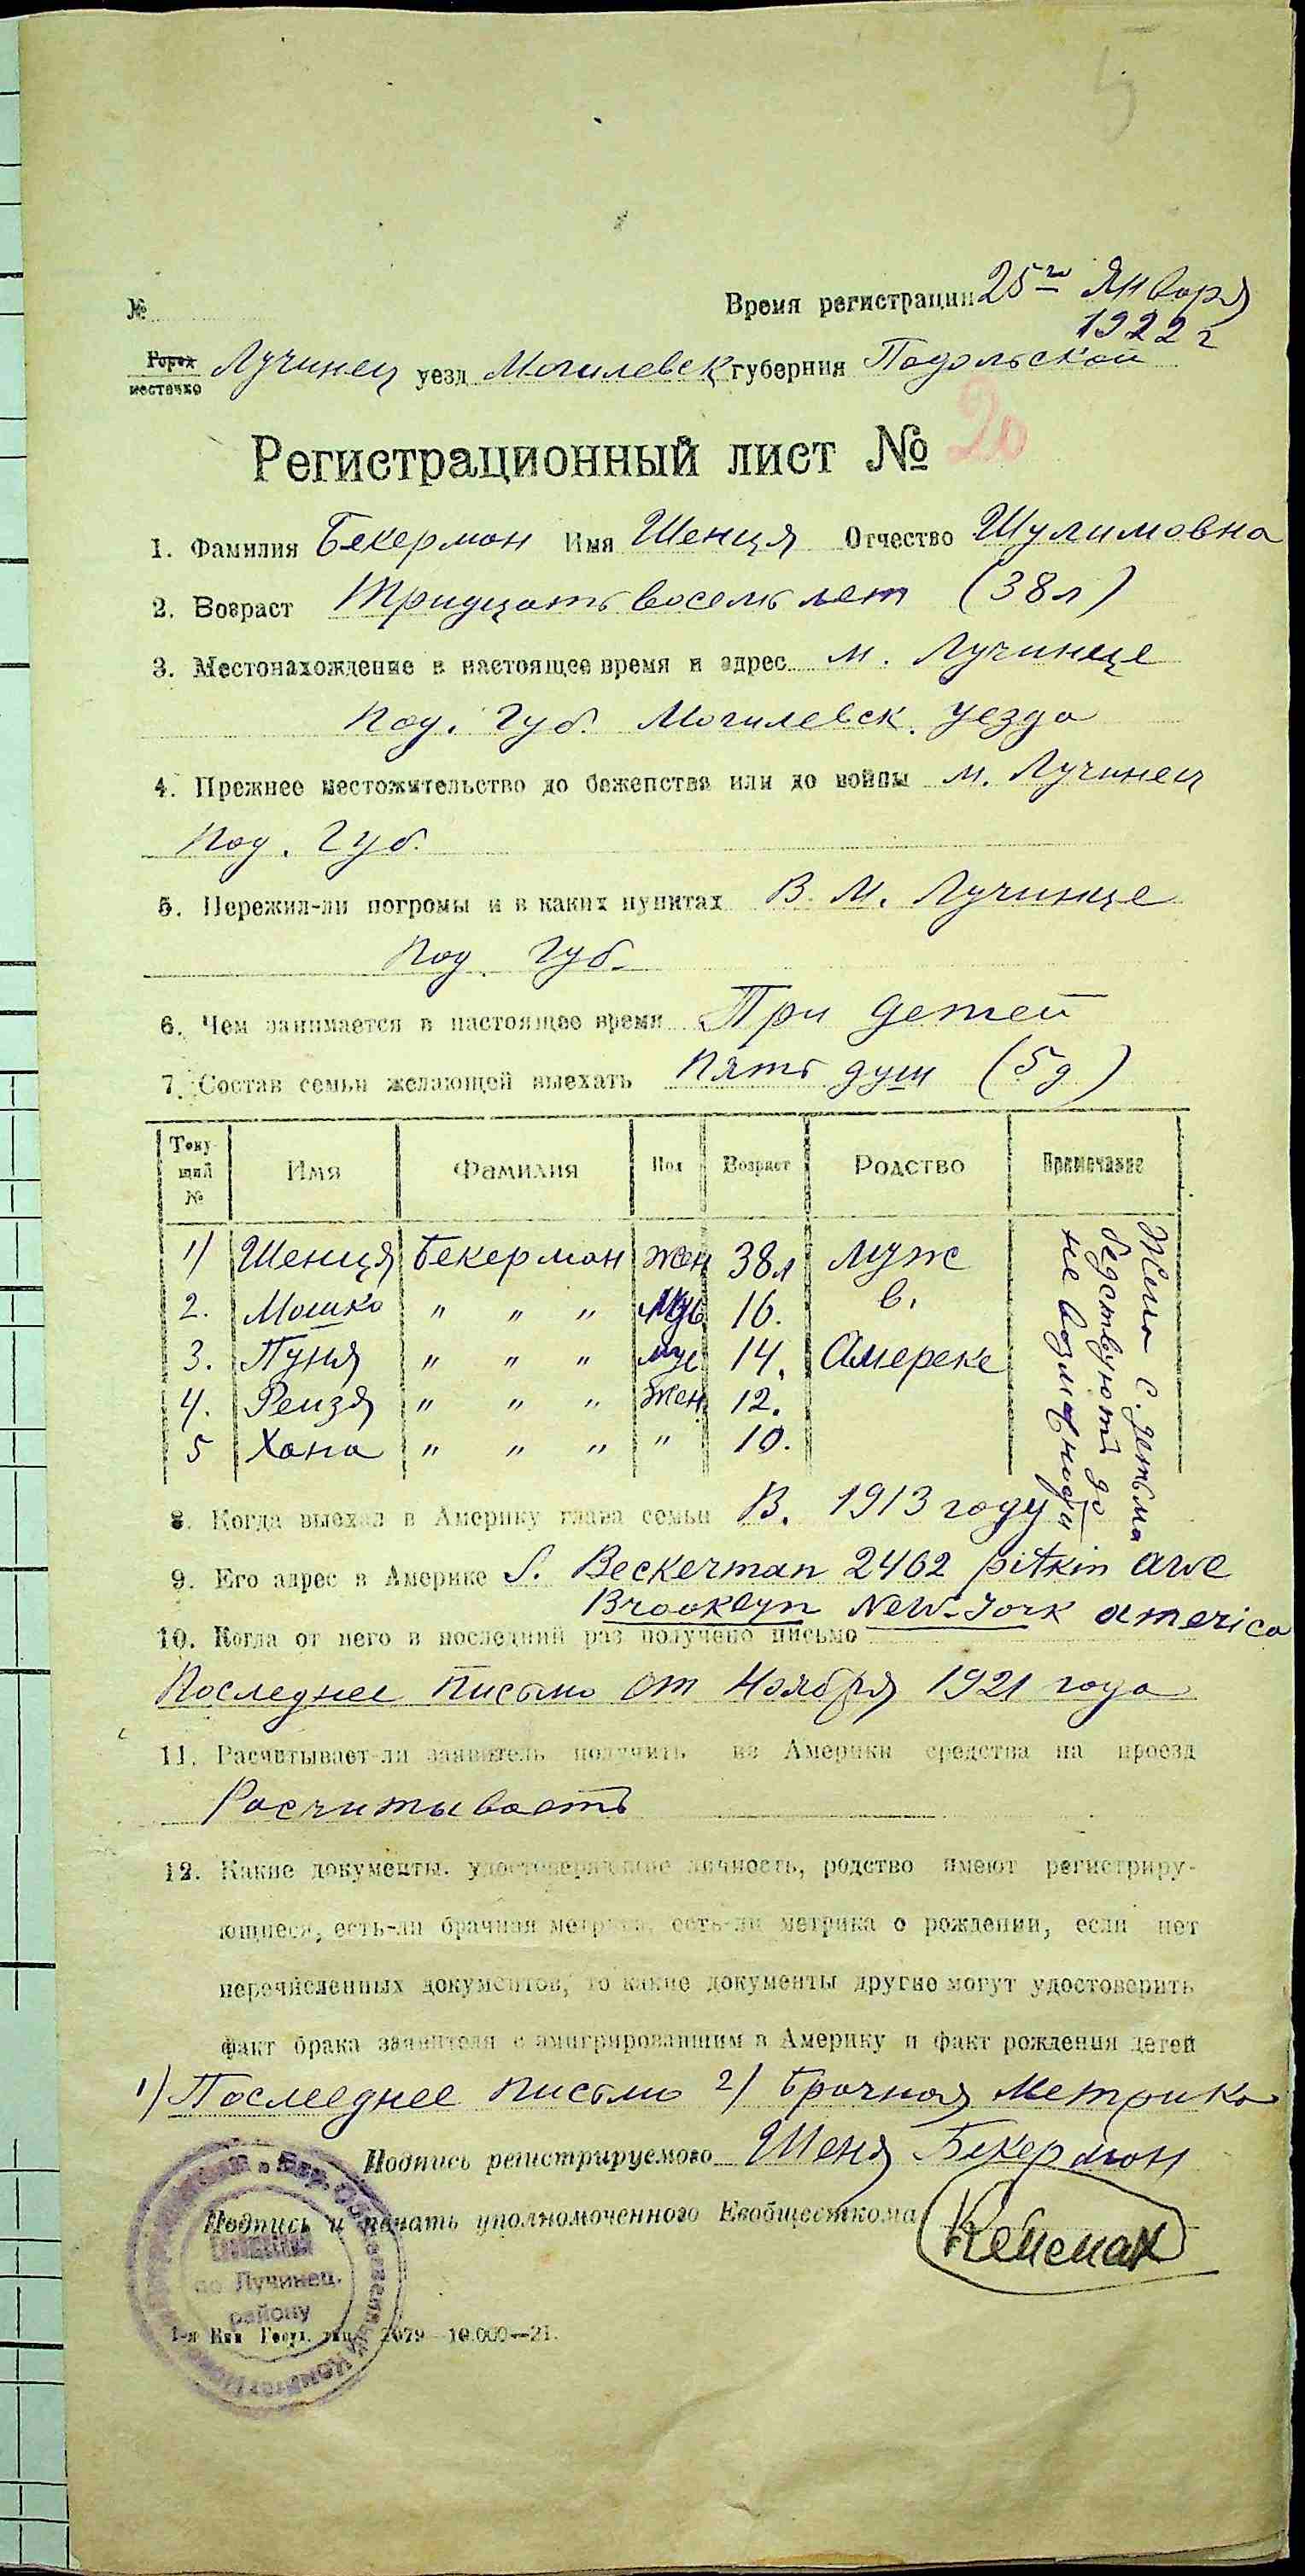 5
№
Время регистрации 25го Января
1922 г
Город
местечко Лучинец уезд Могилевск губерния Подольской
Регистрационный лист № 20
1. Фамилия Бекерман Имя Шенця Отчество Шулимовна
2. Возраст Тридцать восемь лет (38 л)
3. Местонахождение в настоящее время и адрес м. Лучинце
Под. Губ. Могилевск. уезда
4. Прежнее местожительство до беженства или до войны м. Лучинец
Под. Губ.
5. Пережил-ли погромы и в каких пунктах В. м. Лучинце
Под. Губ.
6. Чем занимается в настоящее время При детей
7. Состав семьи желающей выехать Пять душ (5 д)
Теку-
щий
№ Имя Фамилия Пол Возраст Родство Примечание
1) Шенця Бекерман жен 38 л муж
2. Мошко " " " муж 16. в.
3. Пуня " " " муж 14. Амереке
4. Рейзя " " " жен 12.
5 Хана " " " " 10.
Жена с. детьма
бедствуютъ до
8. Когда выехал в Америку глава семьи В. 1913 году
9. Его адрес в Америке S. Beckerman 2462 pitkin awe
Brooklyn New-Jork america
10. Когда от него в последний раз получено письмо
Последнее письмо от Ноября 1921 года
11. Расчитывает-ли заявитель получить из Америки средства на проезд
Расчитываетъ
12. Какие документы, удостоверяющие личность, родство имеют регистриру-
ющиеся, есть-ли брачная метрика, есть-ли метрика о рождении, если нет
перечисленных документов, то какие документы другие могут удостоверить
факт брака заявителя с эмигрировавшим в Америку и факт рождения детей
1) Последнее письмо 2) Брачная метрика
Подпись регистрируемого Шеня Бекерман
Подпись и печать уполномоченного Евобщесткома
по Лучинец.
району
2079—10.000—21.